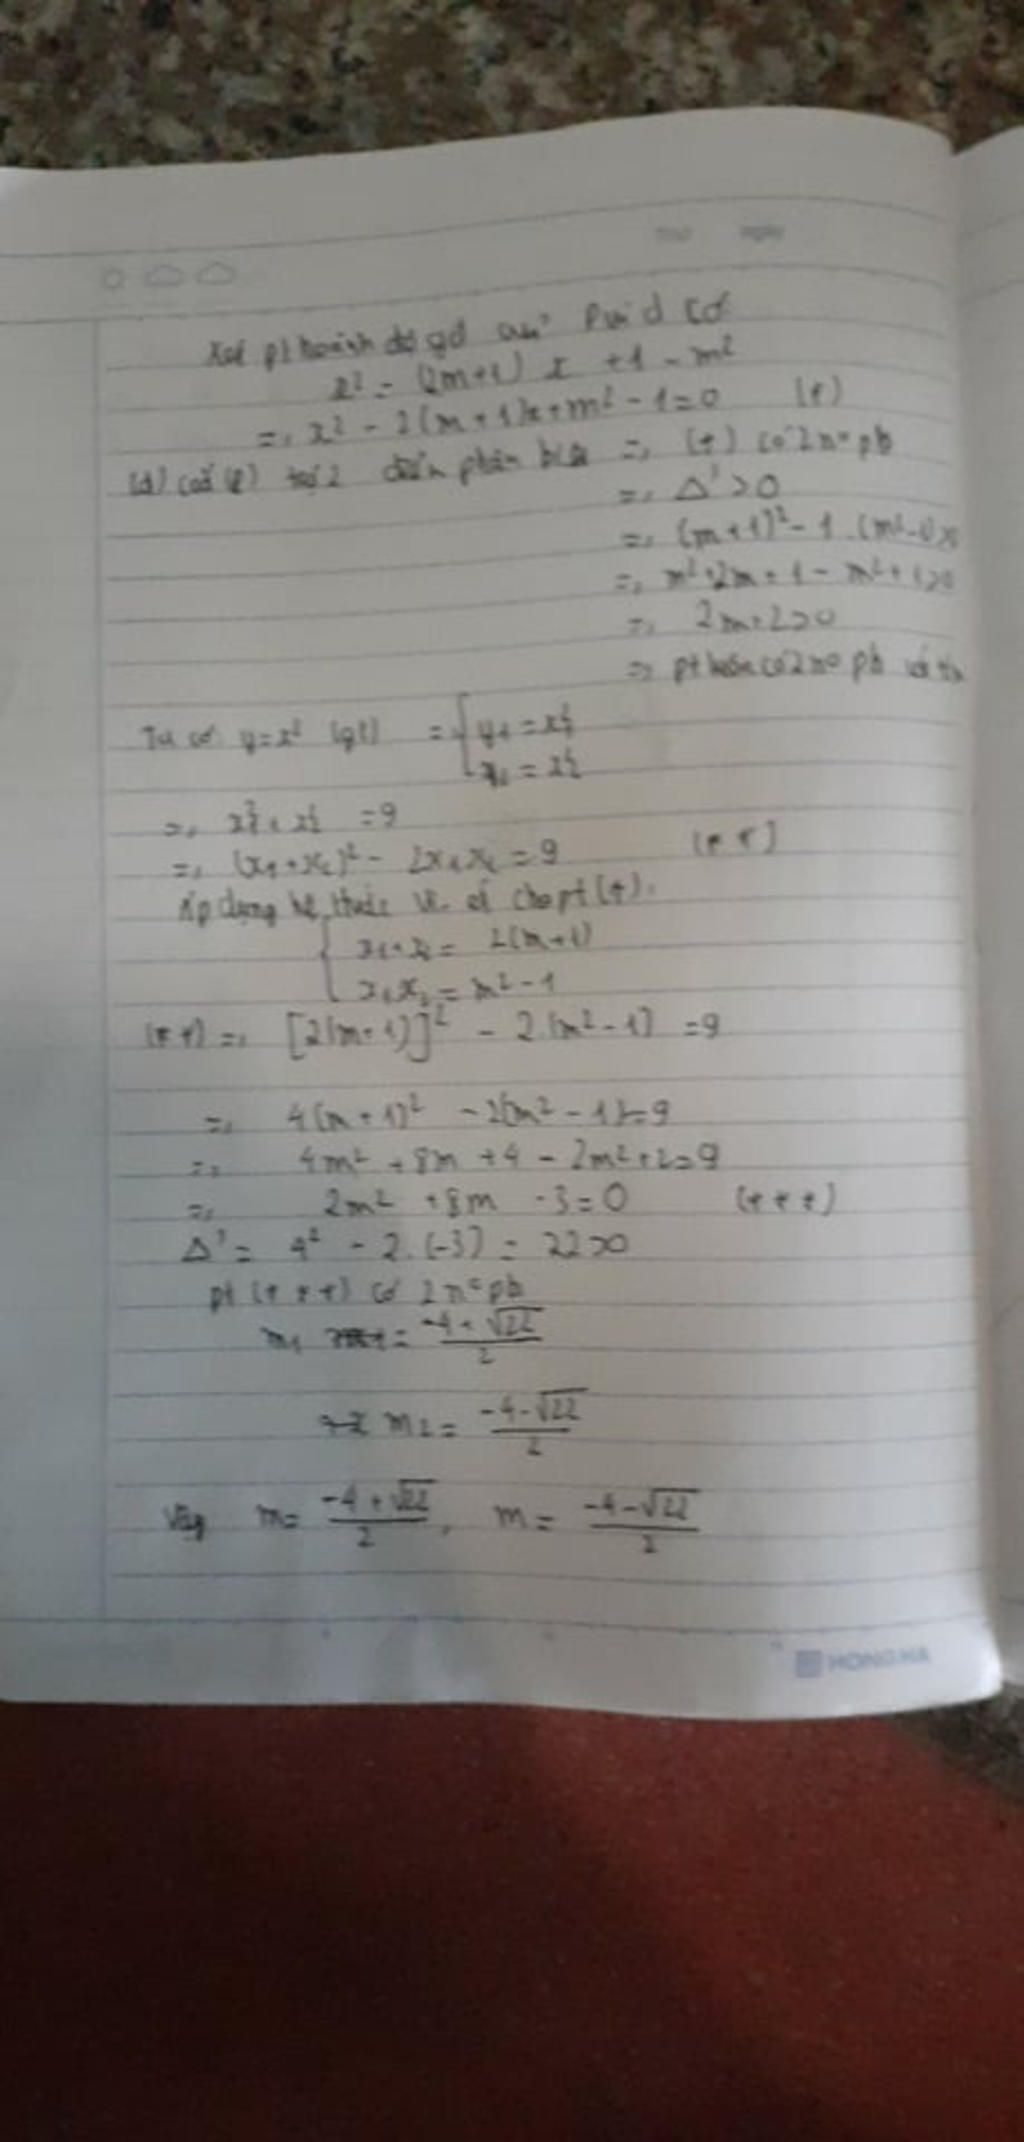 Thứ Ngày
Xét pt hoành độ gđ của P và d có
x² = (2m+1) x + 1 - m²
=> x² - 2(m+1)x+m² - 1=0 (*)
(d) cắt (P) tại 2 điểm phân biệt => (*) có 2 n° pb
=> Δ' > 0
=> (m+1)² - 1.(m²-1)>0
=> m²+2m+1 - m²+1>0
=> 2m+2>0
=> pt luôn có 2 n° pb với
Ta có y=x² (gt) => y₁ = x₁²
y₂ = x₂²
=> x₁² + x₂² = 9
=> (x₁+x₂)² - 2x₁x₂ = 9 (**)
Áp dụng hệ thức Vi-ét cho pt (*).
x₁+x₂ = 2(m+1)
x₁x₂ = m² - 1
(**) => [2(m+1)]² - 2.(m²-1) = 9
=> 4(m+1)² - 2(m² - 1)=9
=> 4m² + 8m + 4 - 2m²+2=9
=> 2m² + 8m - 3 = 0 (***)
Δ' = 4² - 2.(-3) = 22>0
pt (***) có 2 n° pb
m₁ = -4+√22 / 2
m₂ = -4-√22 / 2
Vậy m= -4+√22 / 2, m= -4-√22 / 2
HONG HA